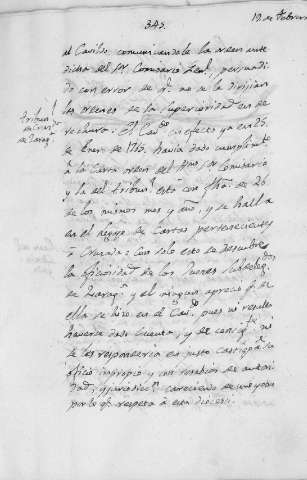 342.
19 de Febrero
el Cavildo comunicandole la orden ante
dicha del Sr. Comisario Gral, persuadido
con error de qe. no se le dirijian
las ordenes de la superioridad en de
rechura. El Cavdo. en efecto ya en 23
de Enero de 1710. havia dado cumplimto
a la Carta orden del Sr. Comisario
y la del Tribunl esto con fha. de 26
de los mismos mes y año, y se halla
en el legajo de Cartas pertenecientes
a Cruzada: con solo esto se descubre
la oficiosidad de los Jueces subdeleg.
de Zaragª. y el ningun aprecio qe. de
ella se hizo en el Cavdo. pues ni resulta
haverse dado cuenta, y de consigte. ni
se les responderia en justo castigo a su
oficio impropio y sin sombra de autori
dad, y jurisdicn. careciendo de una y otra
por lo qe. respeta a esta diocesi.
Tribunl
de Cruzª
de Zaragª.